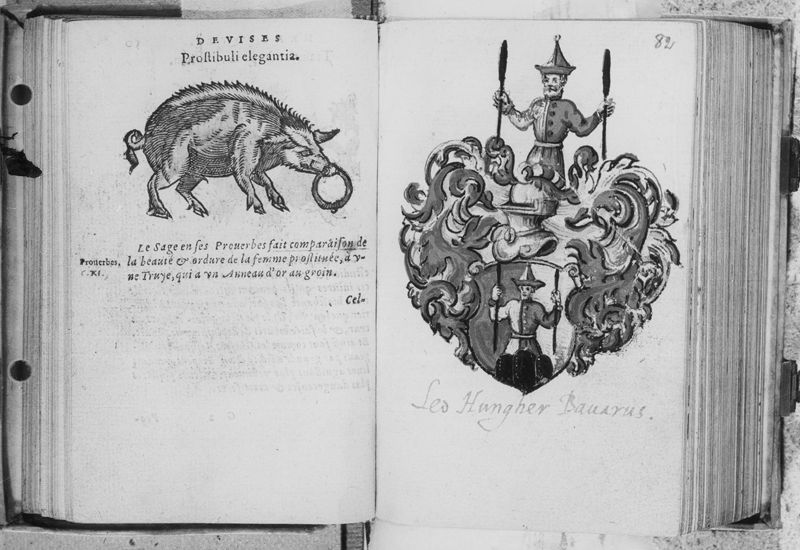 DEVISES
Prostibuli elegantia.
Le Sage en ses Prouerbes fait comparaison de
Prouerbes, la beauté & ordure de la femme prostituée, à v-
C. XI. ne Truye, qui a vn Anneau d'or au groin.
Cel-
82
Leo Hungher Bauarus.